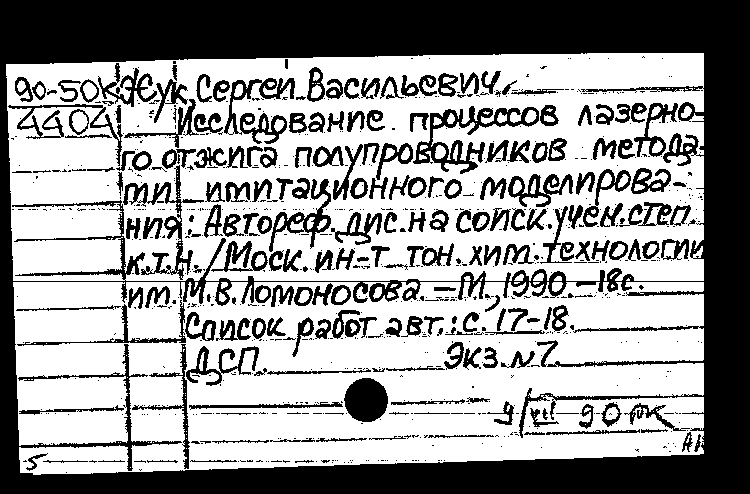 90-50к Жук, Сергей Васильевич.
4404 Исследование процессов лазерно-
го отжига полупроводников метода-
ми имитационного моделирова-
ния: Автореф. дис. на соиск. учен. степ.
к.т.н. / Моск. ин-т тон. хим. технологии
им. М.В. Ломоносова. – М., 1990. – 18 с.
Список работ авт.: с. 17-18.
ДСП. Экз. №7.
9/VII 90
5